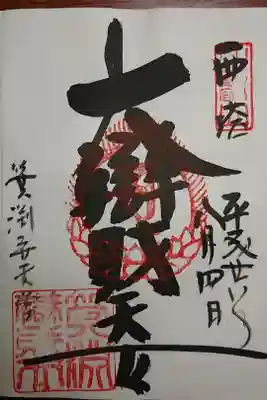 西塔
平成廿八年
八月四日
大辯財天女
箕渕弁天堂